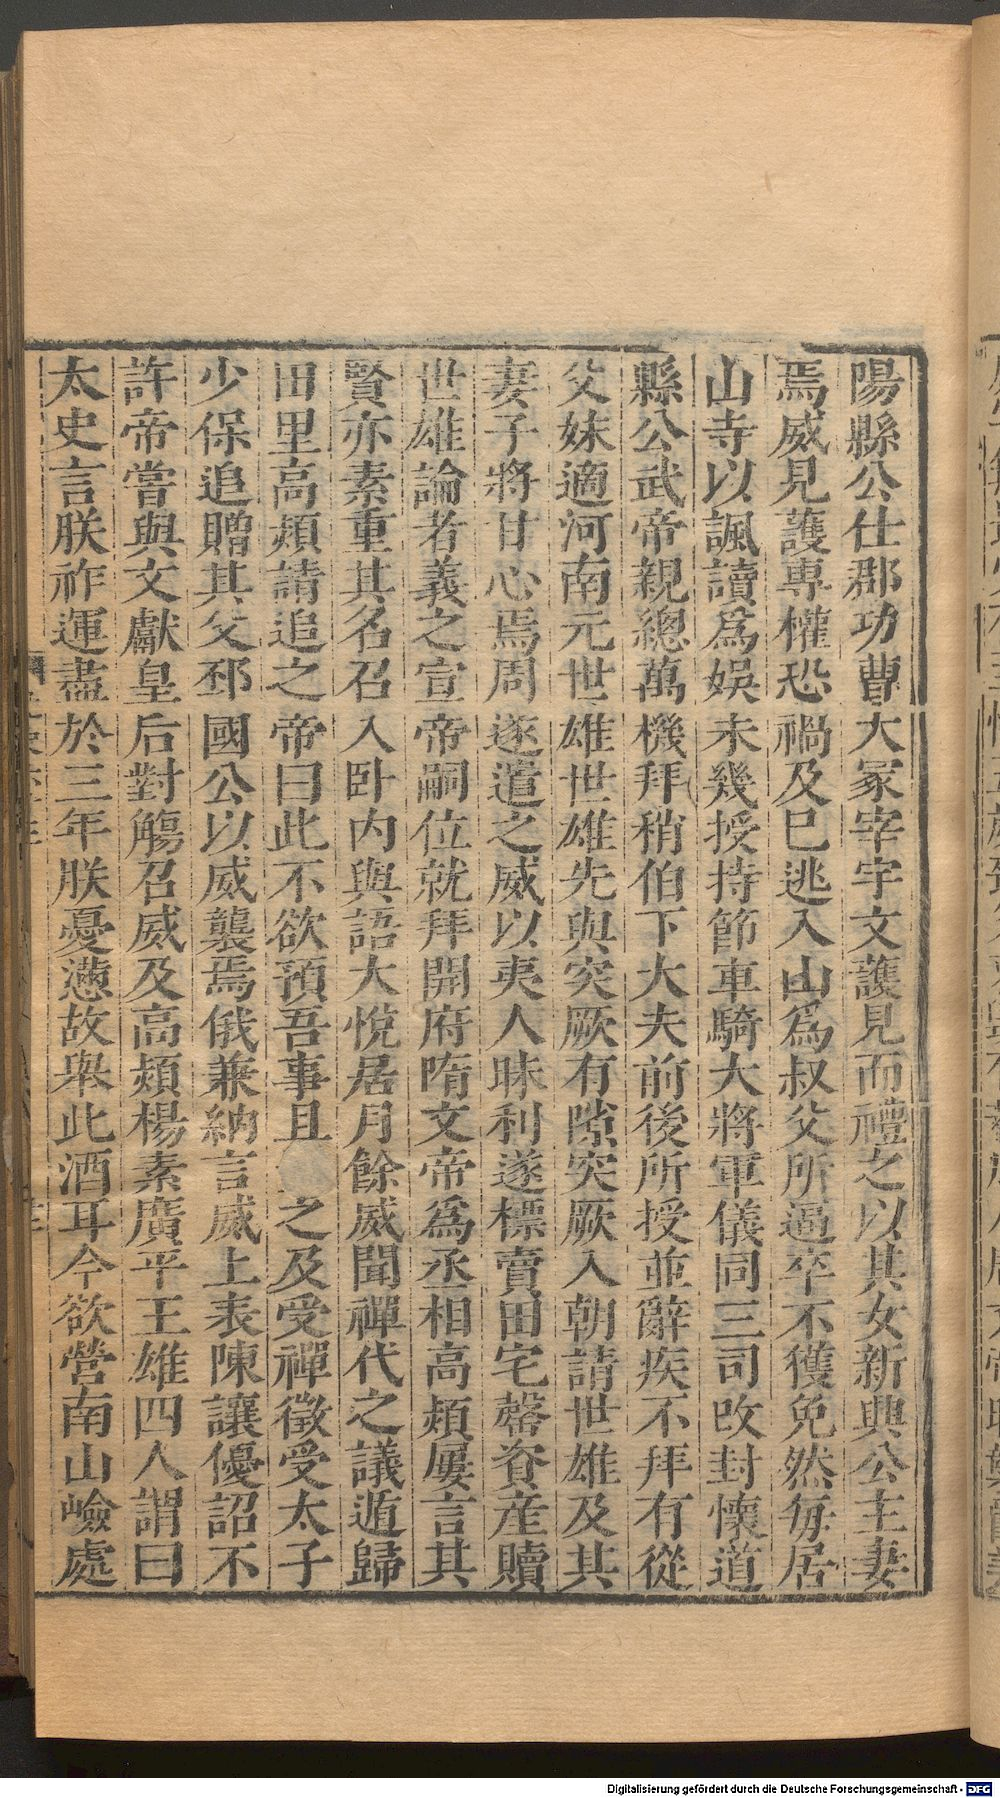 陽縣公仕郡功曹大冢宰宇文護見而禮之以其女新興公主妻
焉威見護專權恐禍及已逃入山爲叔父所逼卒不獲免然每居
山寺以諷讀爲娛未幾授持節車騎大將軍儀同三司改封懷道
縣公武帝親總萬機拜稍伯下大夫前後所授並辭疾不拜有從
父妹適河南元世雄世雄先與突厥有隙突厥入朝請世雄及其
妻子將甘心焉周遂遣之威以夷人昧利遂標賣田宅罄資産贖
世雄論者義之宣帝嗣位就拜開府隋文帝爲丞相高熲屢言其
賢亦素重其名召入卧内與語大悅居月餘威聞禪代之議遁歸
田里高熲請追之帝曰此不欲預吾事且之及受禪徵受太子
少保追贈其父邳國公以威襲焉俄兼納言威上表陳讓優詔不
許帝嘗與文獻皇后對觴召威及高熲楊素廣平王雄四人謂曰
太史言朕祚運盡於三年朕憂懣故舉此酒耳今欲營南山嶮處
Digitalisierung gefördert durch die Deutsche Forschungsgemeinschaft - DFG